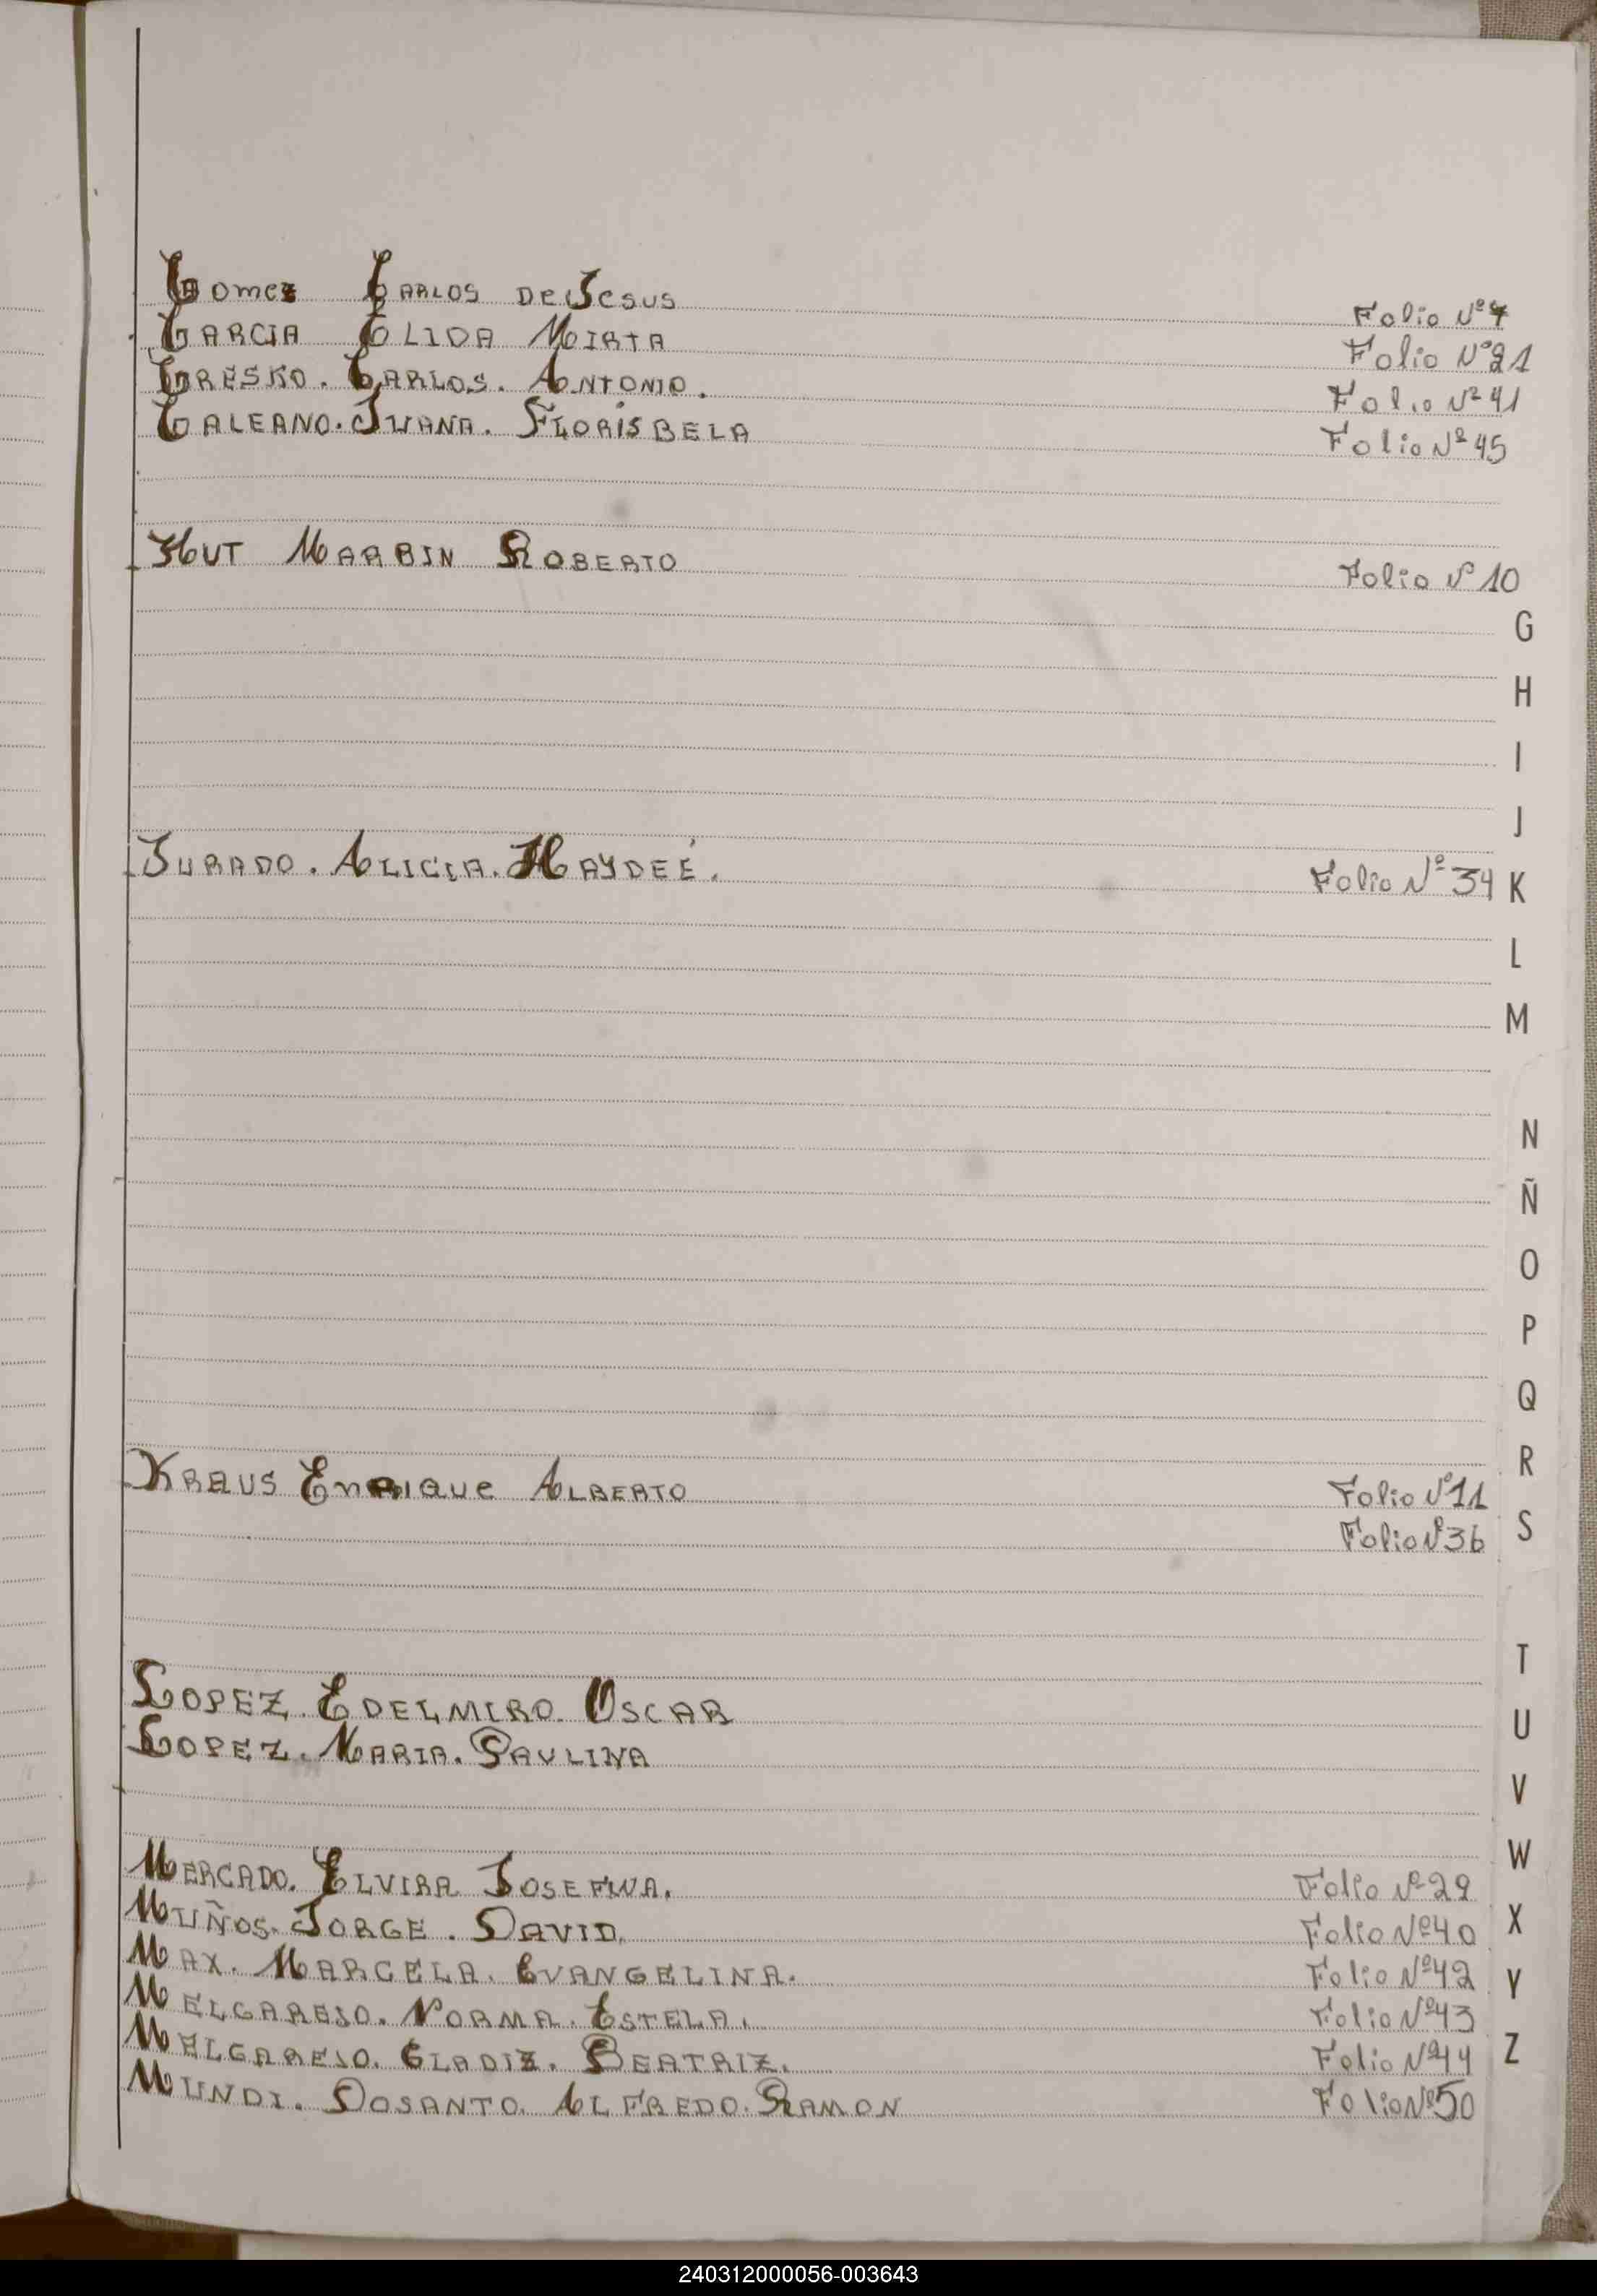 Gomez Carlos De Jesus Folio Nº 7
GARCIA ELIDA MIRTA Folio Nº 21
GRESKO. CARLOS. ANTONIO. Folio Nº 41
GALEANO. JUANA. FLORISBELA Folio Nº 45
HUT MARBIN ROBERTO Folio Nº 10
G
H
I
J
JURADO. ALICIA. HAYDEÉ. Folio Nº 34
K
L
M
N
Ñ
O
P
Q
R
KRAUS ENRIQUE ALBERTO Folio Nº 11
Folio Nº 36
S
T
LOPEZ. EDELMIRO. OSCAR
U
LOPEZ. MARIA. PAULINA
V
W
MERCADO. ELVIRA JOSEFINA. Folio Nº 29
MUÑOS. JORGE. DAVID. Folio Nº 40
X
MAX. MARCELA. EVANGELINA. Folio Nº 42
Y
MELGAREJO. NORMA. ESTELA. Folio Nº 43
MELGAREJO. GLADIZ. BEATRIZ. Folio Nº 44
Z
MUNDI. DOSANTO. ALFREDO. RAMON Folio Nº 50
240312000056-003643